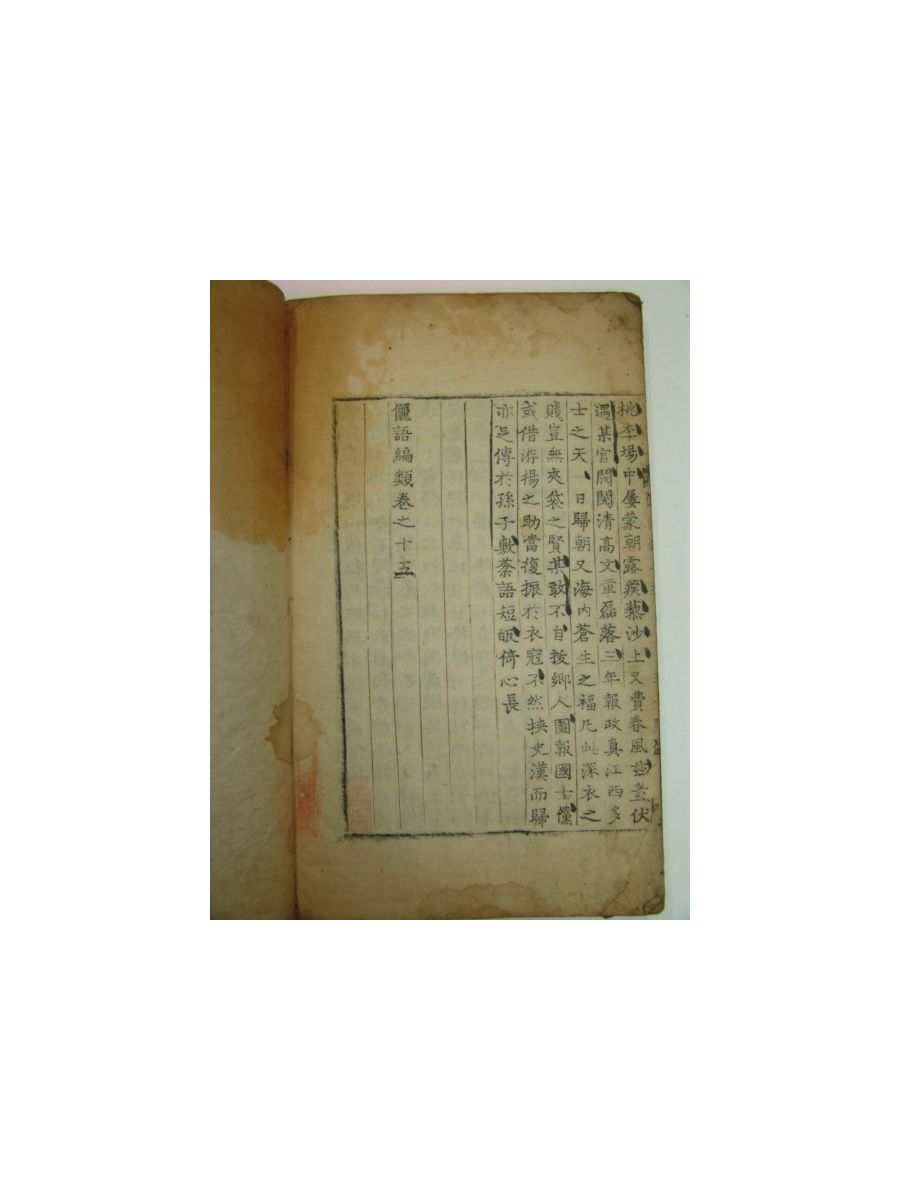 桃李場中屢蒙朝露蒺藜沙上又費春風玆盖伏
遇某官閥閱清高文章磊落三年報政眞江西多
士之天一日歸朝又海内蒼生之福凡此深衣之
賤豈無夾袋之賢某敢不自拔鄉人圖報國士儻
或借游揚之助當復振於衣冠不然挾史漢而歸
亦足傳於孫子敷荼語短皈倚心長
儷語編類卷之十五